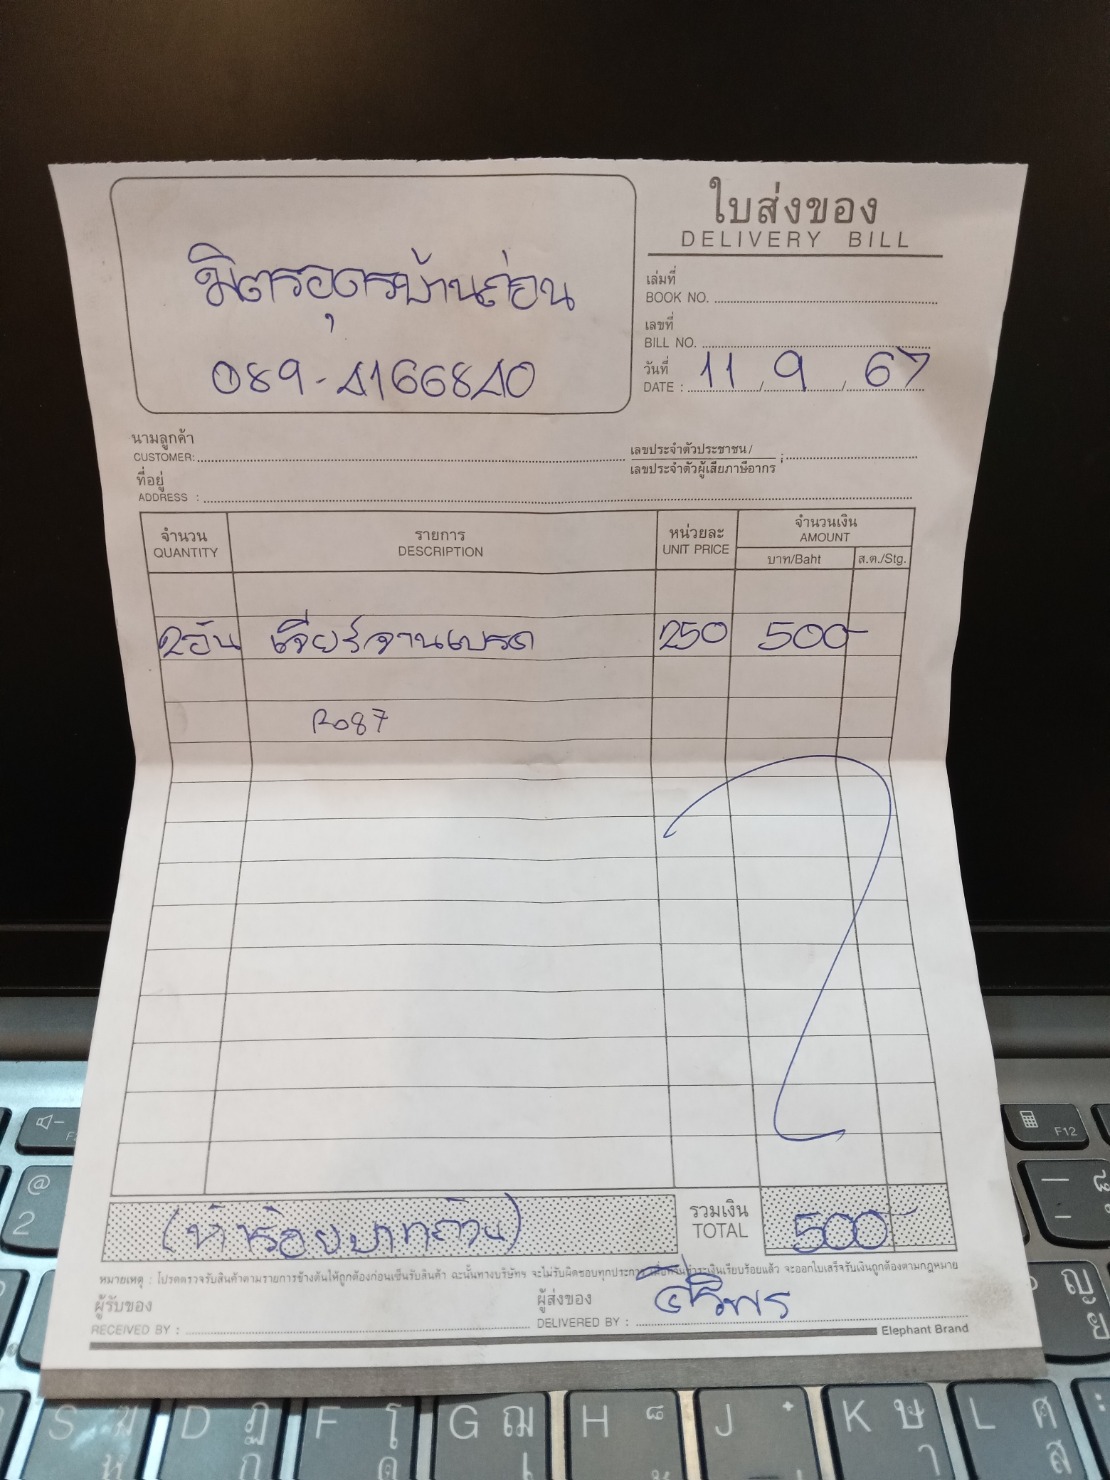 ใบส่งของ
DELIVERY BILL
มิตรอุดรบ้านถ่อน
089-4166840
เล่มที่
BOOK NO.
เลขที่
BILL NO.
วันที่
DATE : 11 / 9 / 67
นามลูกค้า
CUSTOMER:
เลขประจำตัวประชาชน /
เลขประจำตัวผู้เสียภาษีอากร :
ที่อยู่
ADDRESS :
จำนวน รายการ หน่วยละ จำนวนเงิน
QUANTITY DESCRIPTION UNIT PRICE AMOUNT
บาท/Baht ส.ต./Stg.
2อัน เจียร์จานเบรด 250 500-
Ro87
(ห้าร้อยบาทถ้วน) รวมเงิน 500-
TOTAL
หมายเหตุ : โปรดตรวจรับสินค้าตามรายการข้างต้นให้ถูกต้องก่อนเซ็นรับสินค้า ฉะนั้นทางบริษัทฯ จะไม่รับผิดชอบทุกประการ เงินเรียบร้อยแล้ว จะออกใบเสร็จรับเงินถูกต้องตามกฎหมาย
ผู้รับของ ผู้ส่งของ ศิริพร
RECEIVED BY : DELIVERED BY :
Elephant Brand
F12
@
2
ญ
ย
S ฆ
ห
D ฏ
ก
F โ
ด
G ฌ
เ
H
J
K ษ
า
L ศ
ส